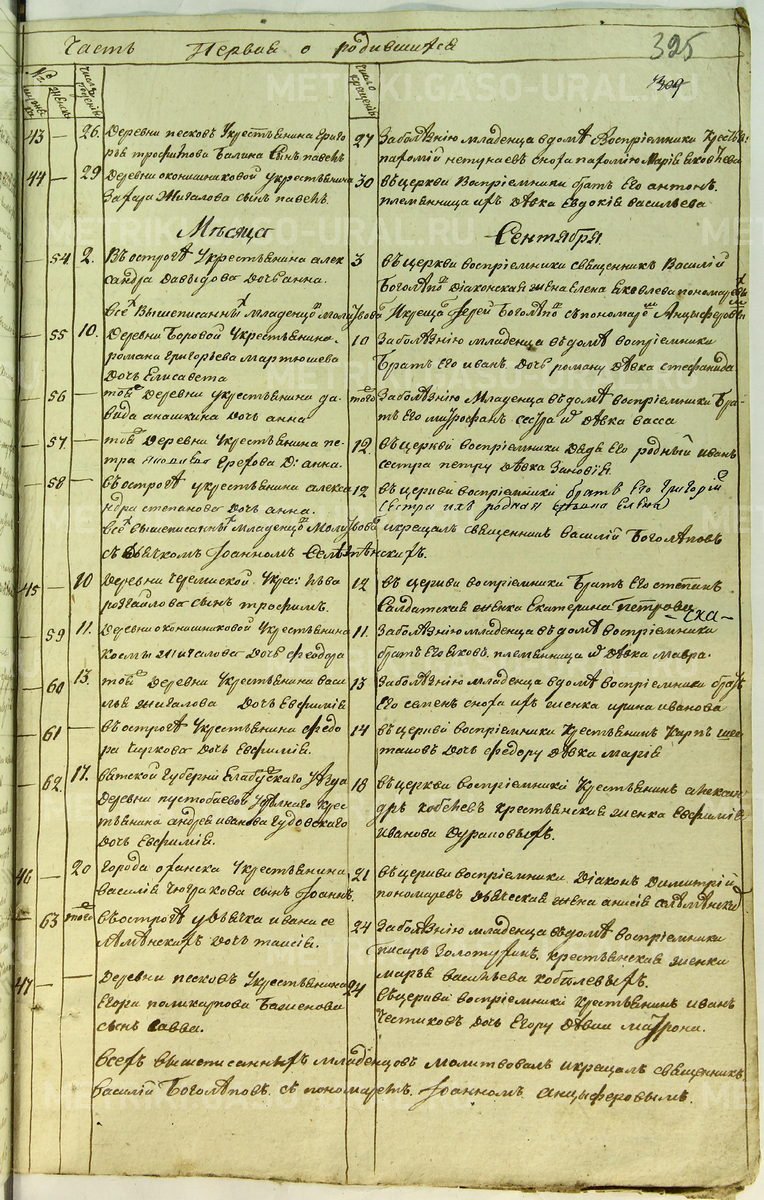 Часть Первая о родившихся
325
309
Число крещенiя
43 — 26. Деревни песковъ Укрестьянина Григо
рья трофимова Балина сынъ павелъ
27 Заболѣзнiю младенца вдомѣ Воспрiемники
Марiя Яковлева
44 — 29 Деревни оконишниковой укрестьянина
Захара Жигалова сынъ павелъ.
30 вцеркви Воспрiемники братъ Его антонъ.
племянница ихъ дѣвка Евдокiя васильева
Мѣсяца Сентября
— 54. 2. Въ острогѣ Укрестьянина алек
сандра Давыдова Дочь анна.
3 въ церкви воспрiемники священникъ Василiй
Боголѣпо Дiаконская жена Елена Яковлева пономарева
всѣ Вышеписанныхъ младенцо молитвова Икреща Iерей Боголѣпо съпономаро Анцыферов
— 55 10. Деревни Боровой Укрестьянина
романа григорьева Мартюшева
Дочь Елисавета
10 Заболѣзнiю младенца въдомѣ воспрiемники
Братъ Его иванъ. Дочь роману дѣвка стефанида
— 56 — той Деревни укрестьянина да-
вида анашкина Дочь анна
того Заболѣзнiю Младенца въдомѣ воспрiемники Бра-
тъ Его митрофанъ сестра и дѣвка васса
— 57. — той Деревни Укрестьянина пе-
тра Ерефова Д: анна.
12. въ церкви воспрiемники Дядя Его родный иванъ
сестра петру дѣвка Зиновiя.
— 58 — въострогѣ укрестьянина алекса
ндра степанова Дочь анна.
12 въ церкви воспрiемники братъ Его григорiй
сестра ихъ родная Елена
всѣ вышеписанныхъ младенцо Молитвова икрещалъ священникъ василiй Боголѣповъ
съ дьячкомъ Iоанномъ
45 — 10 Деревни Черемиской Укрес: льва
ромайлова сынъ трофимъ.
12 въ церкви воспрiемники Братъ Его степанъ
Салдатская женка Екатерина петровска-
— 59 11. Деревни оконишниковой Укрестьянина
Космы жигалова Дочь феодора
11. Заболѣзнiю младенца въдомѣ воспрiемники
братъ Его яковъ. племянница и дѣвка мавра.
— 60 13. той Деревни Укрестьянина васи-
лья жигалова Дочь Евфимiя
13 Заболѣзнiю младенца вдомѣ воспрiемники братъ
Его семенъ сноха ихъ женка ирина иванова
— 61 — въострогѣ Укрестьянина федо
ра Чиркова Дочь Евфимiя.
14 въцеркви воспрiемники Крестьянинъ Карпъ
Дочь федору дѣвка марiя
— 62. 17. вятской губернiи Елабугскаго уѣзда
Деревни пустобаевой Удѣлнаго Крес
тьянина андрея иванова гудовскаго
Дочь Евфимiя.
18 въцеркви воспрiемники Крестьянинъ алексан
дръ кобелевъ крестьянская женка Евфимiя
Иванова Дураковыхъ.
46 — 20 города оханска Укрестьянина,
василiя сынъ Iоаннъ.
21 въ церкви воспрiемники. Дiаконъ Димитрiй
пономаревъ Дьяческая жена анисiя
— 63 того въострогѣ удьячка ивана се
Дочь таисiя.
24 Заболѣзнiю младенца вдомѣ воспрiемники
писарь Золотухинъ, крестьянская женка
марья васильева кобелевыхъ.
47 — — Деревни песковъ Укрестьянина
Егора поликарпова Баженова
сынъ савва.
24 въцеркви воспрiемники Крестьянинъ иванъ
Чистяковъ дочь Егору дѣвка матрона.
всехъ вышеписанныхъ младенцовъ молитвовалъ икрещалъ священникъ
василiй Боголѣповъ. съ пономаремъ. Iоанномъ. анцыферовымъ.